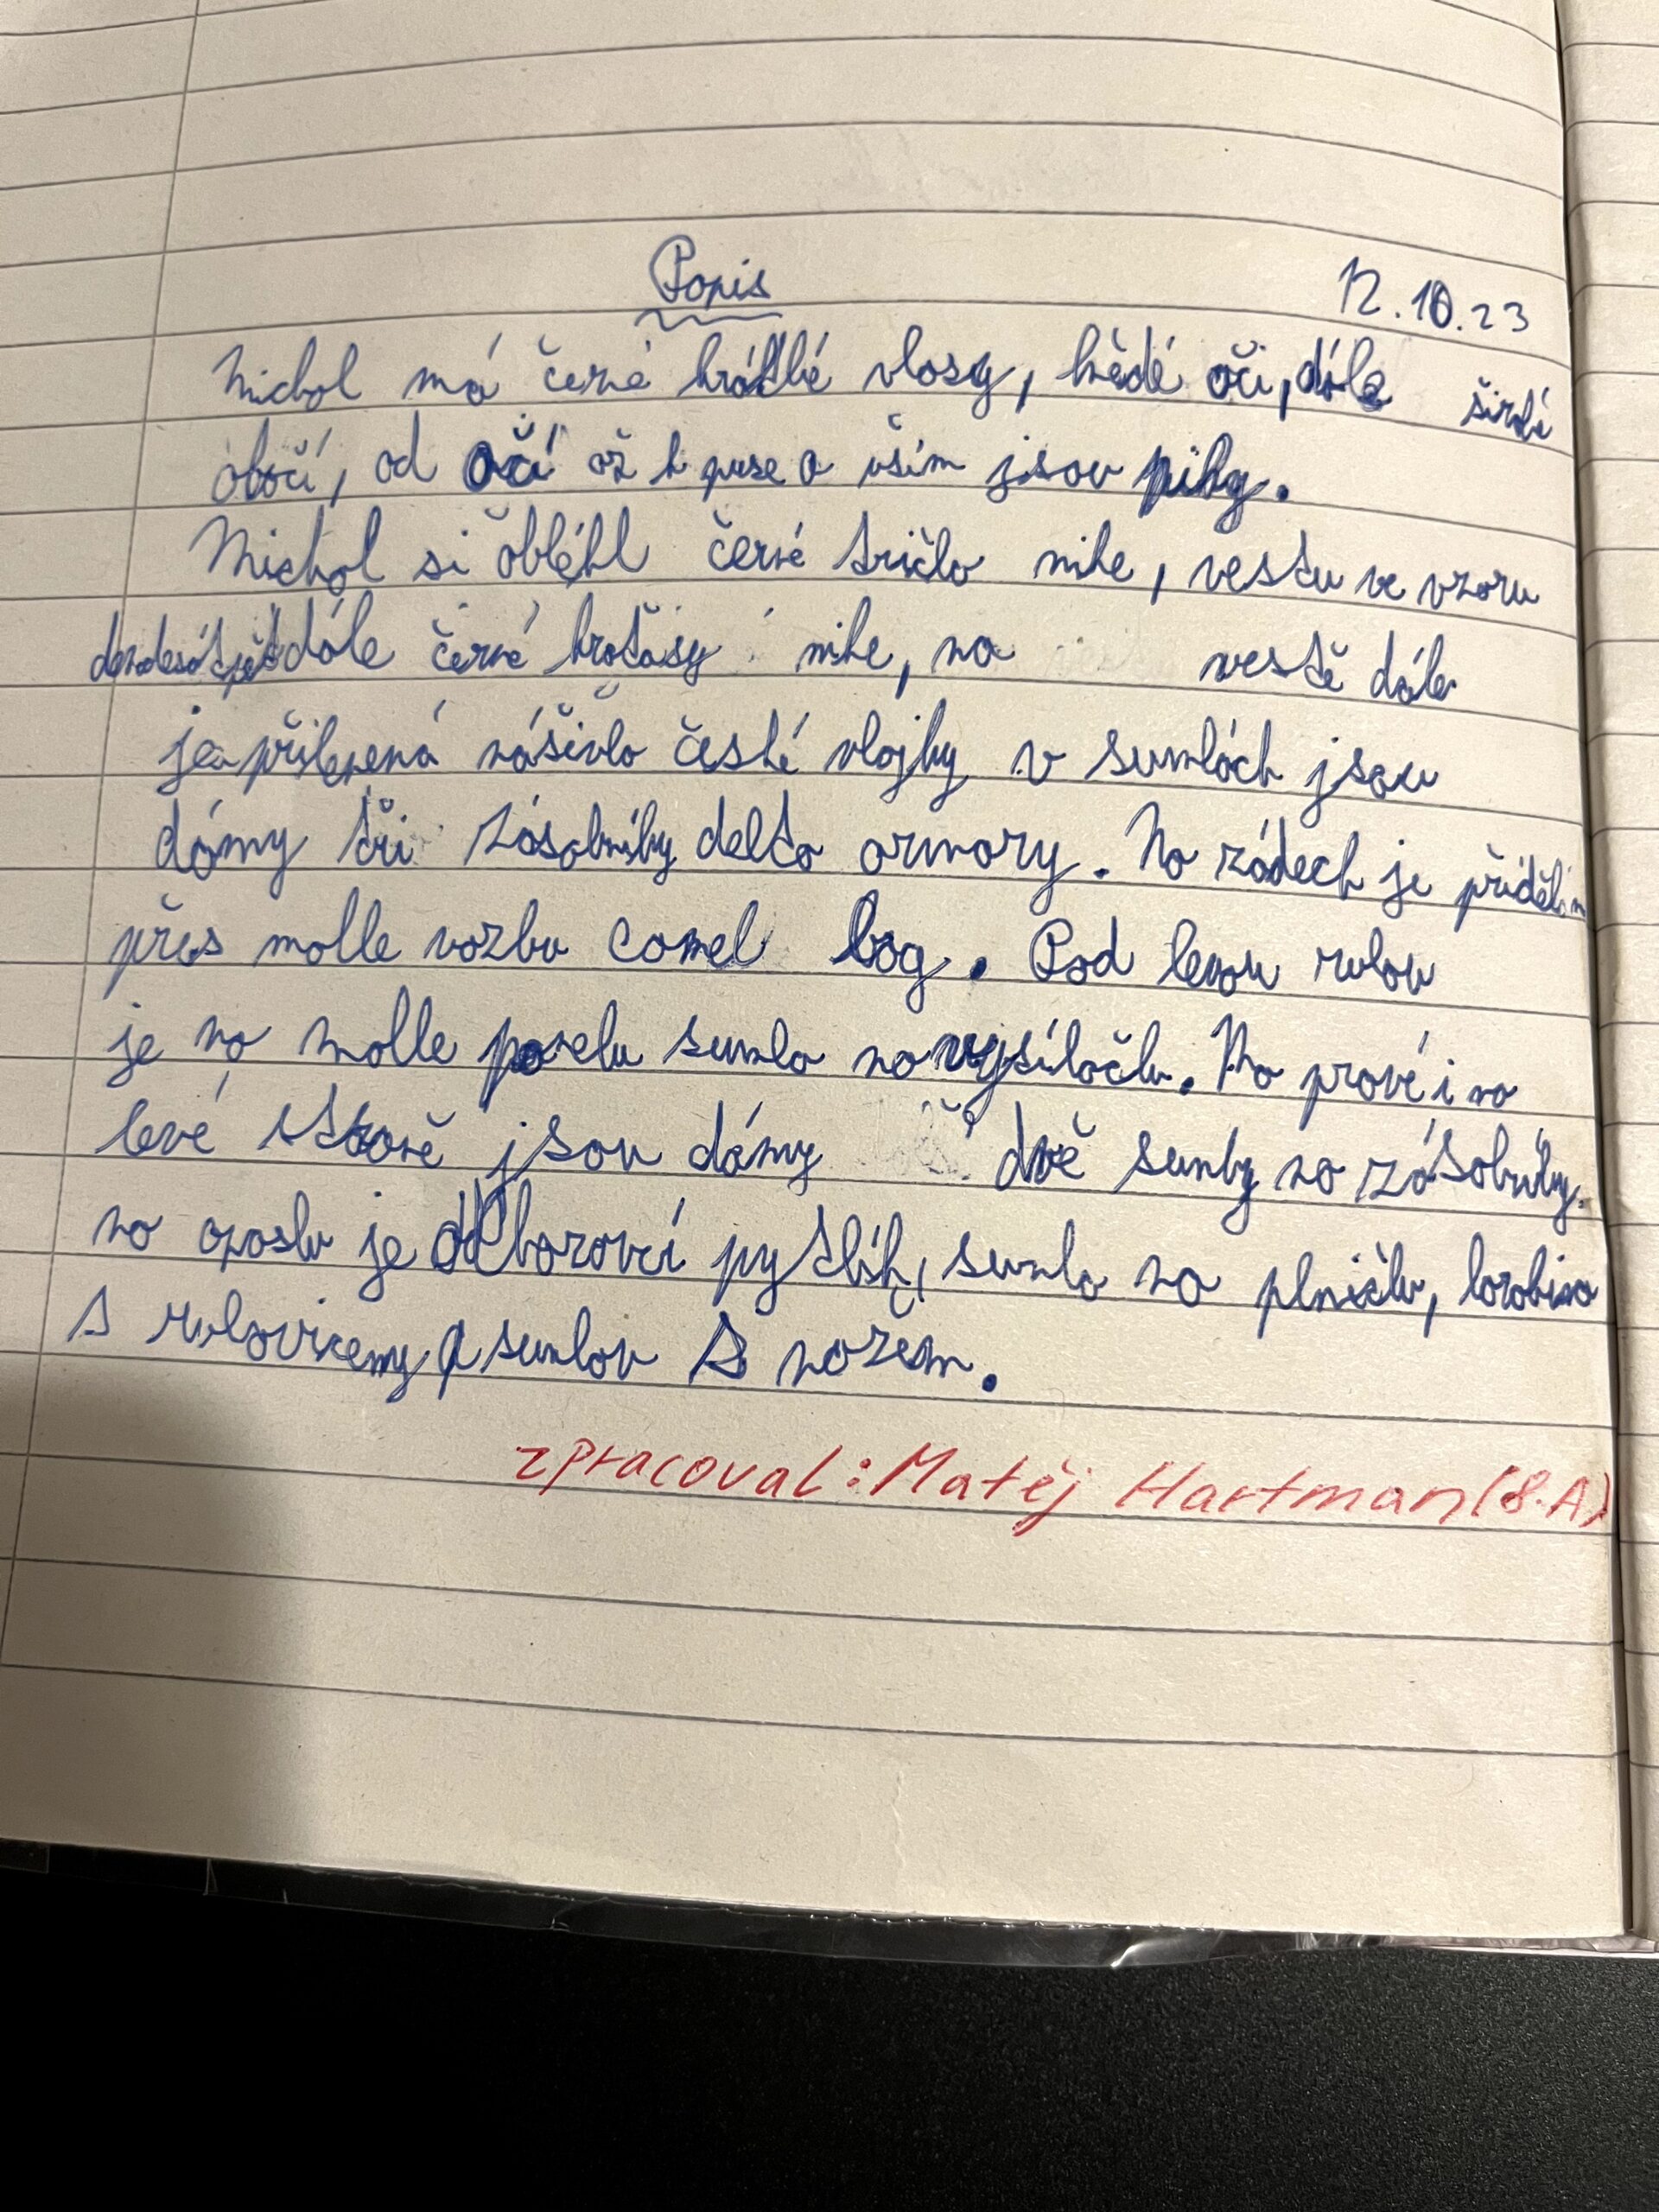 Popis
12.10.23
Michal má černé krátké vlasy, hnědé oči, dále široké
obočí, od očí až k puse a uším jsou pihy.
Michal si obléhl černé tričko nike, vestu ve vzoru
devadesátpět dále černé kraťasy nike, na vestě dále
je přilepená nášivka české vlajky v sumkách jsou
dámy tři zásobníky delta armory. Na zádech je přidělán
přes molle vazbu camel bag. Pod levou rukou
je na molle panelu sumka na vysílačku. Na pravé i na
levé straně jsou dámy dvě sumky na zásobníky.
na opasku je odhazovcí pytlík, sumka na plničku, karabina
s rukavicemy a sumkou s nožem.
zpracoval: Matěj Hartman (8.A)